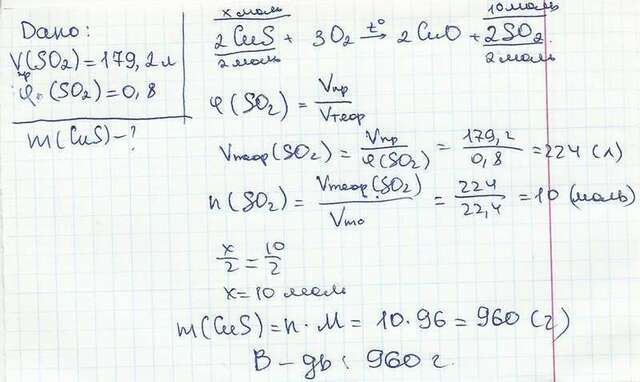 Дано:
Vпр(SO₂) = 179,2 л
φ (SO₂) = 0,8
m(CuS) – ?
x моль 10 моль
2 CuS + 3O₂ →t° 2 CuO + 2SO₂
2 моль 2 моль
φ(SO₂) = Vпр / Vтеор
Vтеор(SO₂) = Vпр / φ(SO₂) = 179,2 / 0,8 = 224 (л)
n(SO₂) = Vтеор(SO₂) / Vmo = 224 / 22,4 = 10 (моль)
x/2 = 10/2
x = 10 моль
m(CuS) = n · M = 10 · 96 = 960 (г)
В – дь : 960 г.